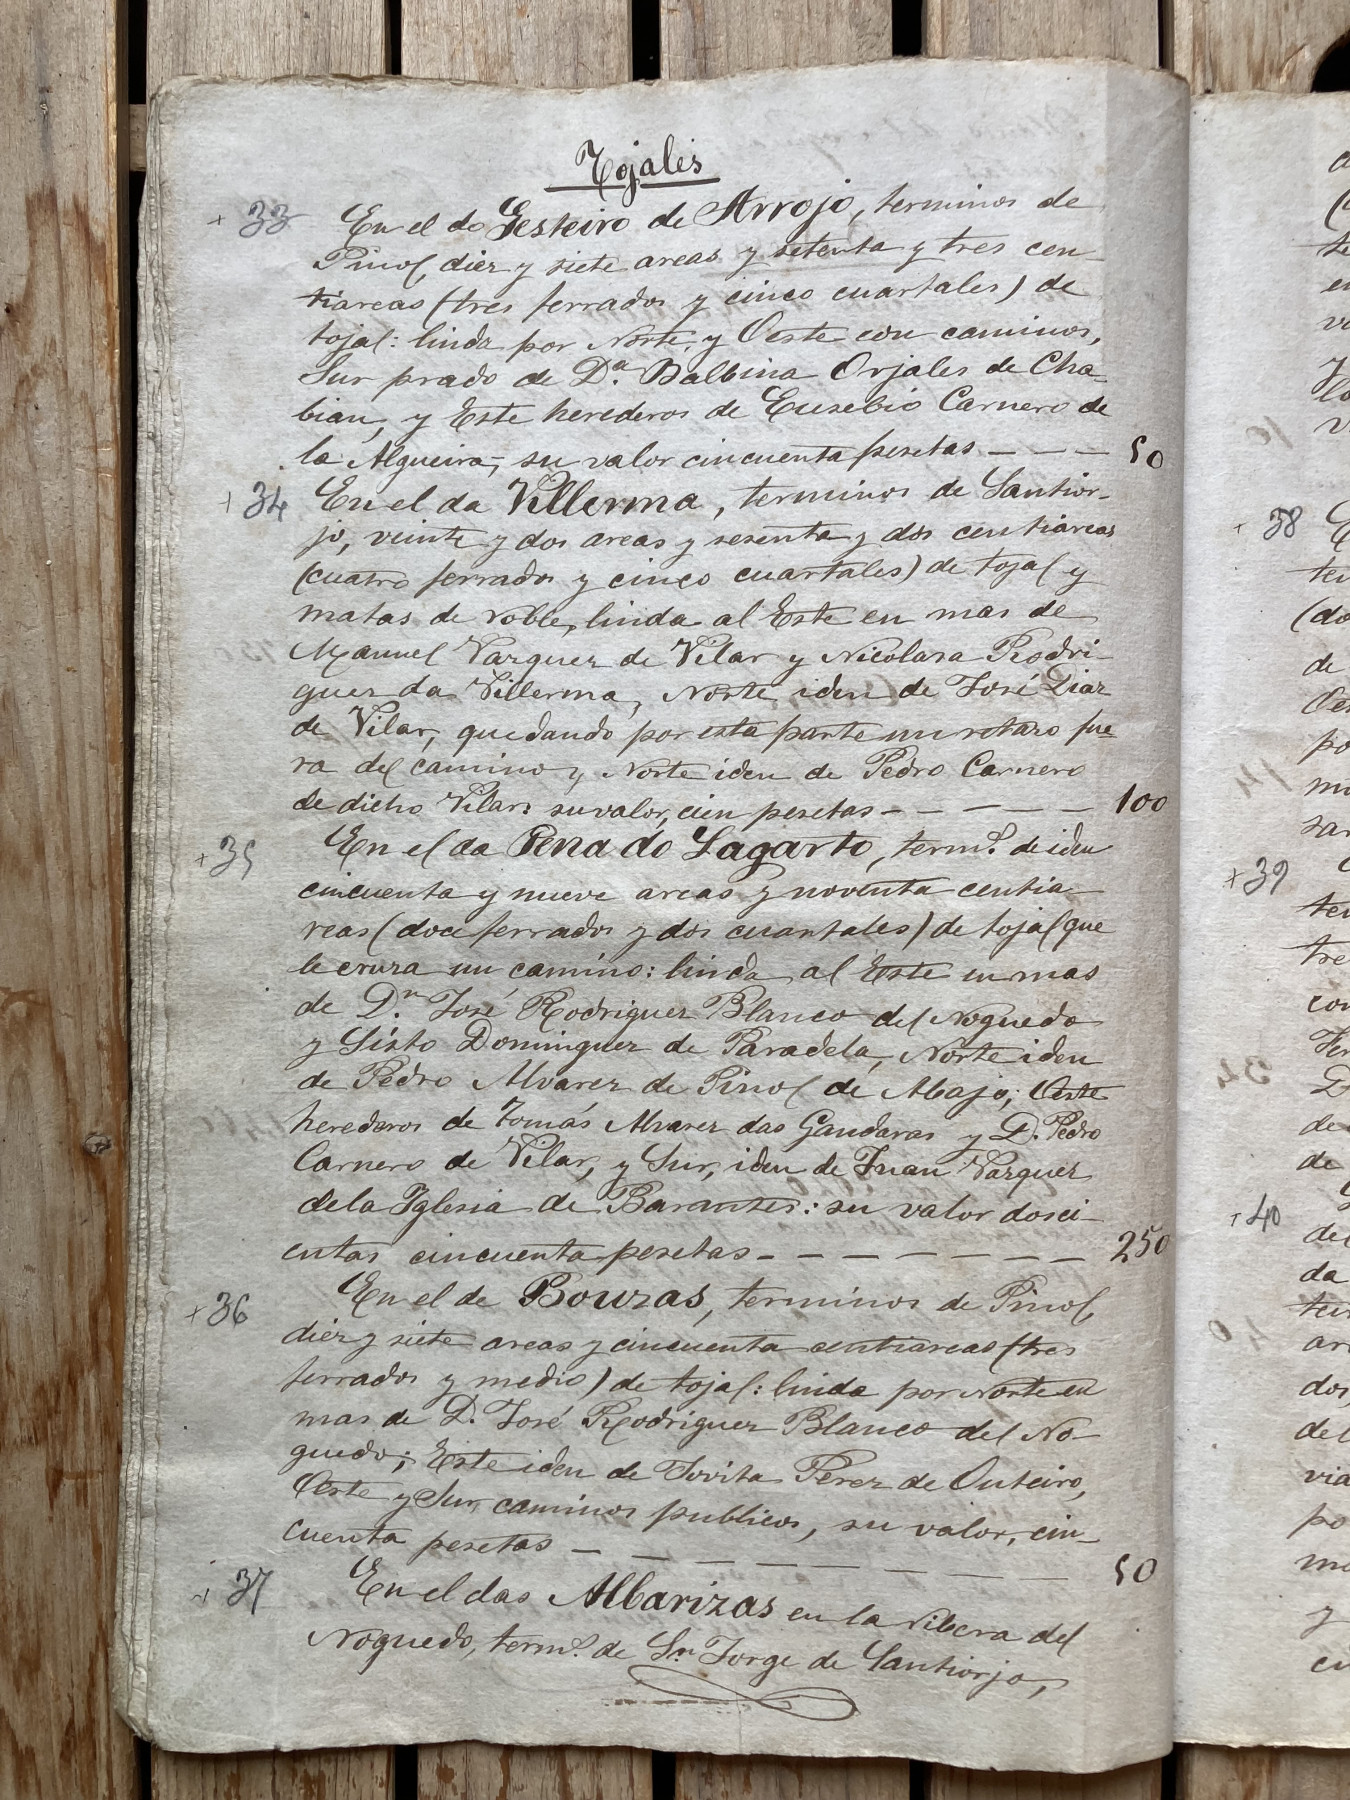 Tojales
+ 33 En el do Gesteiro de Arrojo, terminos de
Pinol, diez y siete areas y setenta y tres cen
tiareas (tres ferrados y cinco cuartales) de
tojal: linda por Norte, y Oeste con caminos,
Sur prado de D.ª Balbina Orjales de Cha-
bian, y Este herederos de Eusebio Carnero de
la Algueira, su valor cincuenta pesetas - - - 50
+ 34 En el da Villerma, terminos de Santior-
jo, veinte y dos areas y sesenta y dos centiareas
(cuatro ferrados y cinco cuartales) de tojal y
matas de roble, linda al Este en mas de
Manuel Vazquez de Vilar y Nicolasa Rodri-
guez da Villerma, Norte iden de José Diaz
de Vilar, quedando por esta parte un retazo fue-
ra del camino y Norte iden de Pedro Carnero
de dicho Vilar: su valor, cien pesetas - - - - - 100
+ 35 En el da Pena do Lagarto, term.º de iden
cincuenta y nueve areas y noventa centia
reas (doce ferrados y dos cuartales) de tojal que
le cruza un camino: linda al Este en mas
de D.n José Rodriguez Blanco del Noguedo
y Sisto Dominguez de Paradela, Norte iden
de Pedro Alvarez de Pinol de Abajo; Oeste
herederos de Tomás Alvarez das Gandaras y D. Pedro
Carnero de Vilar, y Sur, iden de Juan Vazquez
de la Iglesia de Barantes: su valor dosci-
entas cincuenta pesetas - - - - - - 250
+ 36 En el de Bouzas, terminos de Pinol,
diez y siete areas y cincuenta centiareas (tres
ferrados y medio) de tojal: linda por Norte en
mas de D. José Rodriguez Blanco del No-
guedo; Este iden de Jovita Perez de Outeiro,
Oeste y Sur caminos publicos, su valor, cin-
cuenta pesetas - - - - - - - - 50
+ 37 En el das Albarizas en la ribera del
Noguedo, term.º de S.n Jorge de Santiorjo,
+ 38
+ 39
+ 40